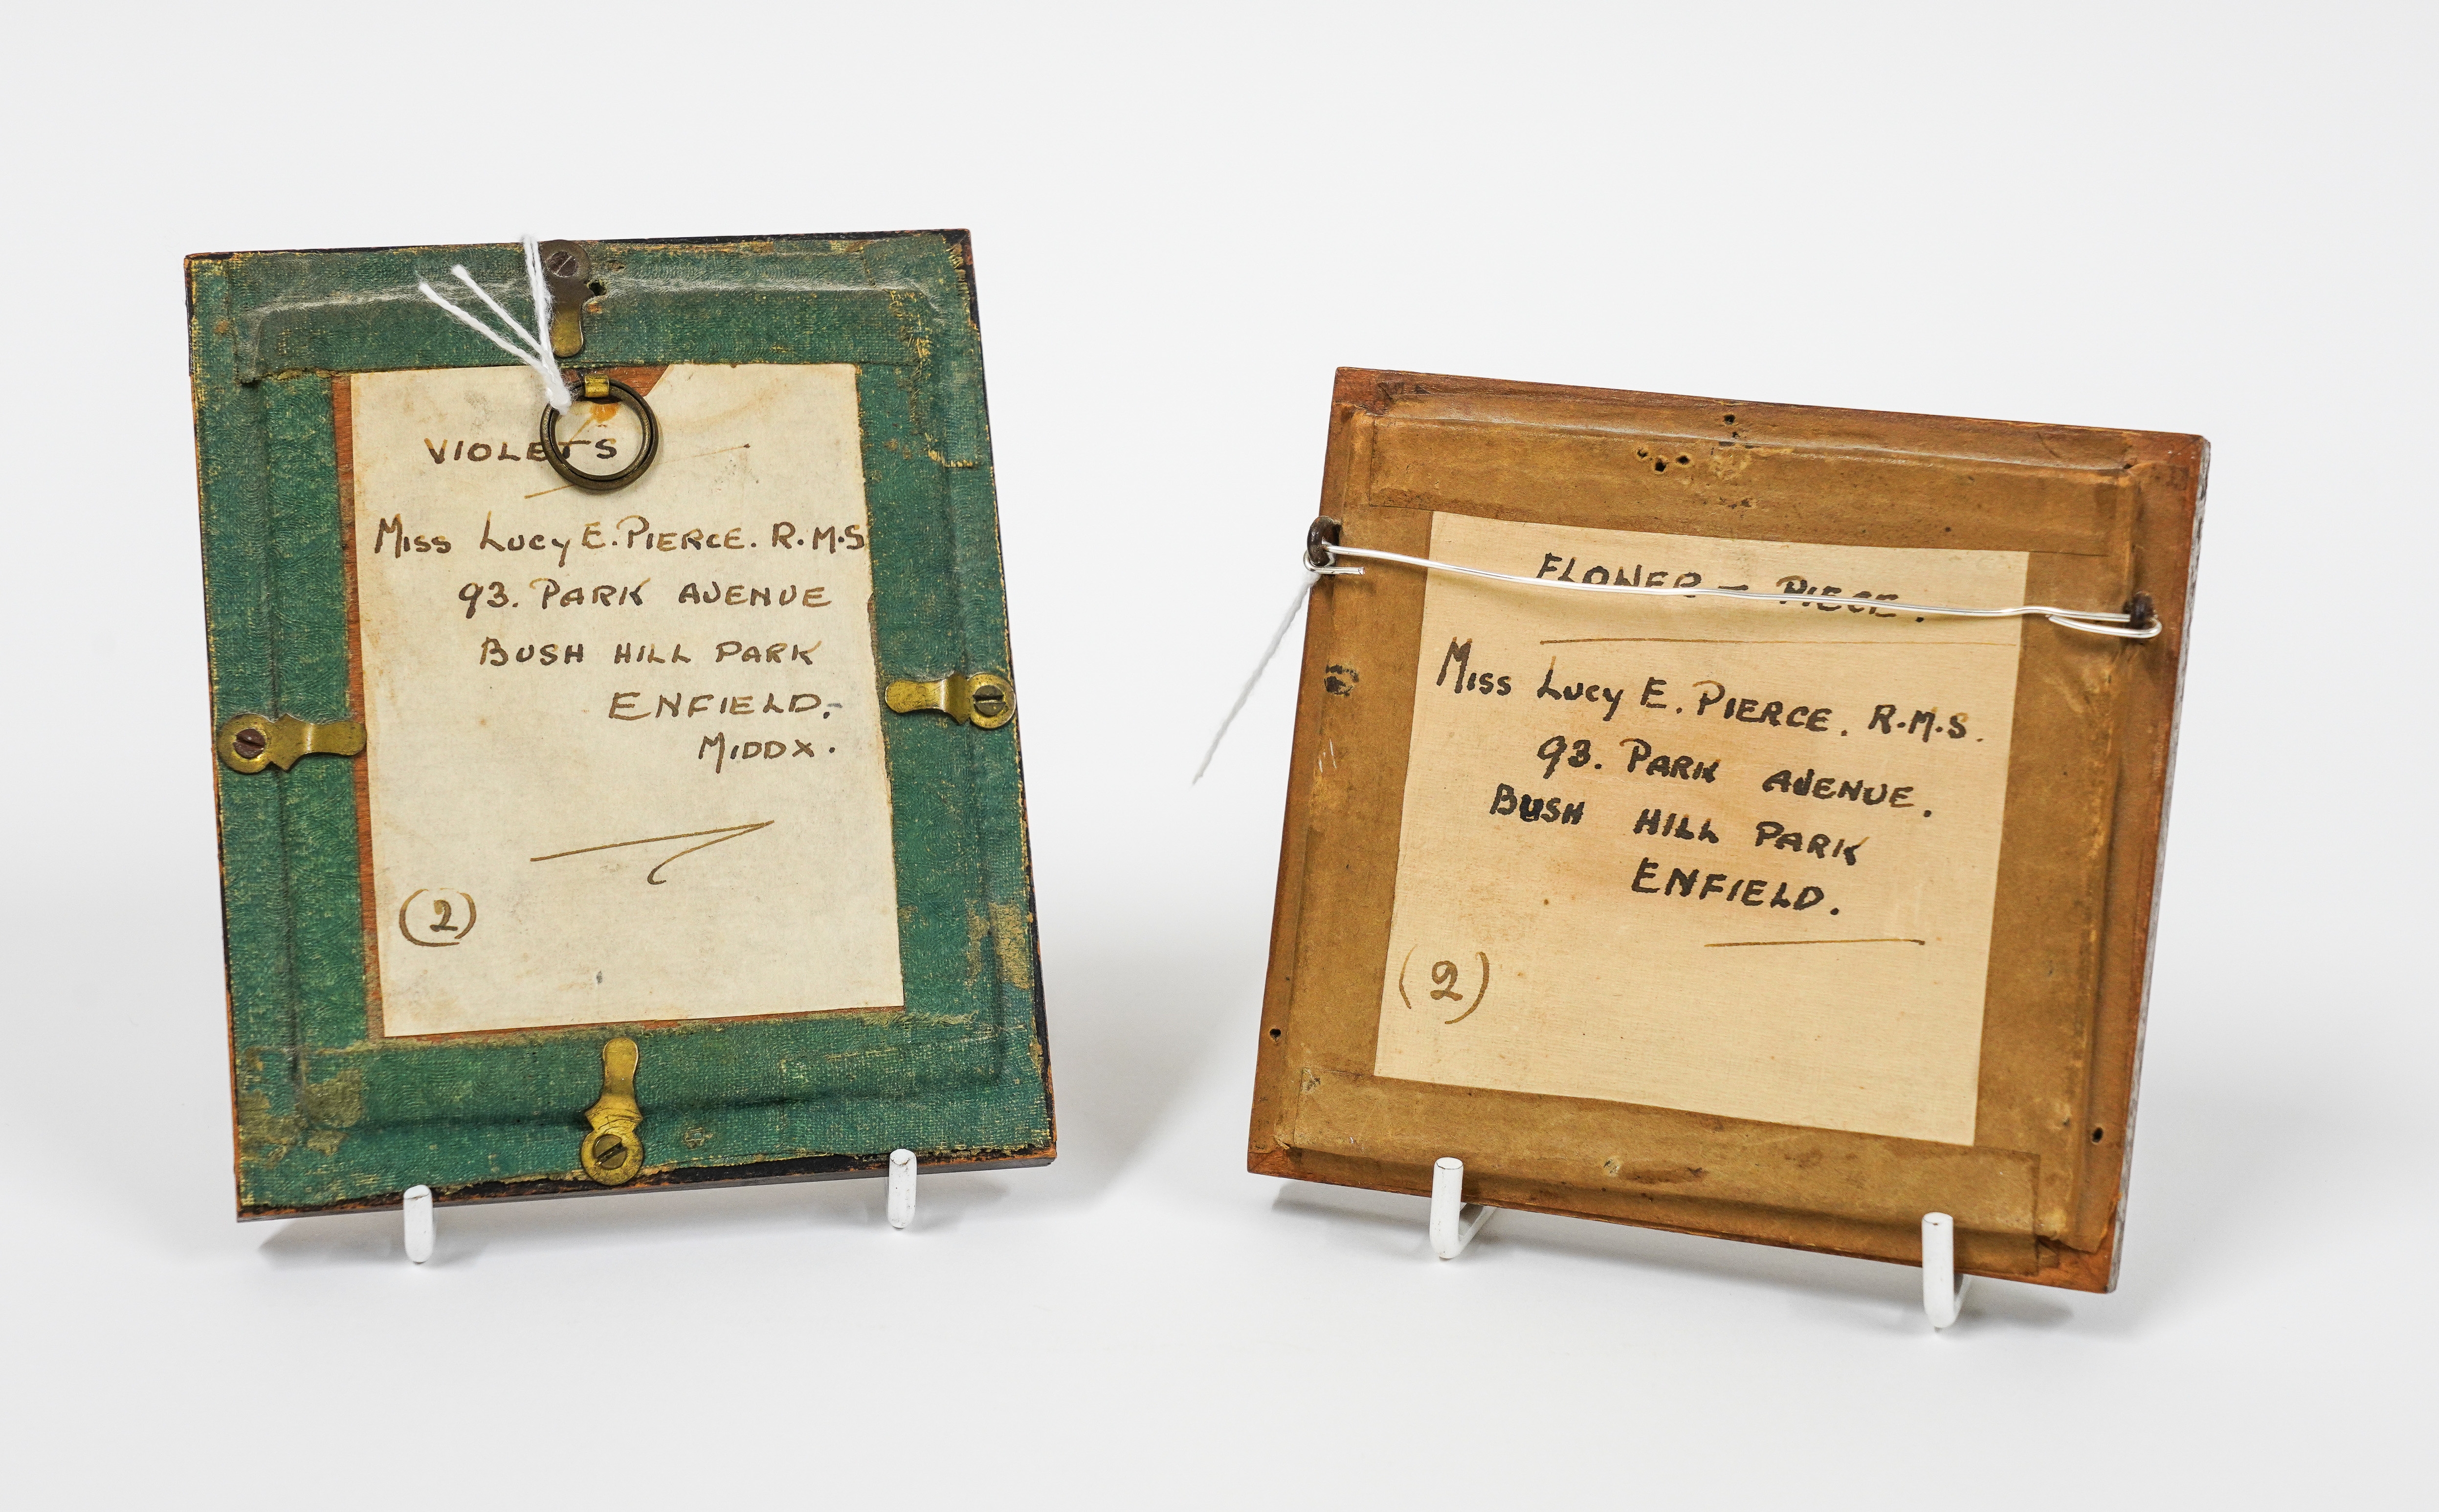 VIOLETS
Miss Lucy E. PIERCE. R.M.S
93. PARK AVENUE
BUSH HILL PARK
ENFIELD.
MIDDX.
(2)
FLOWER - PIECE.
Miss Lucy E. PIERCE. R.M.S.
93. PARK AVENUE.
BUSH HILL PARK
ENFIELD.
(2)